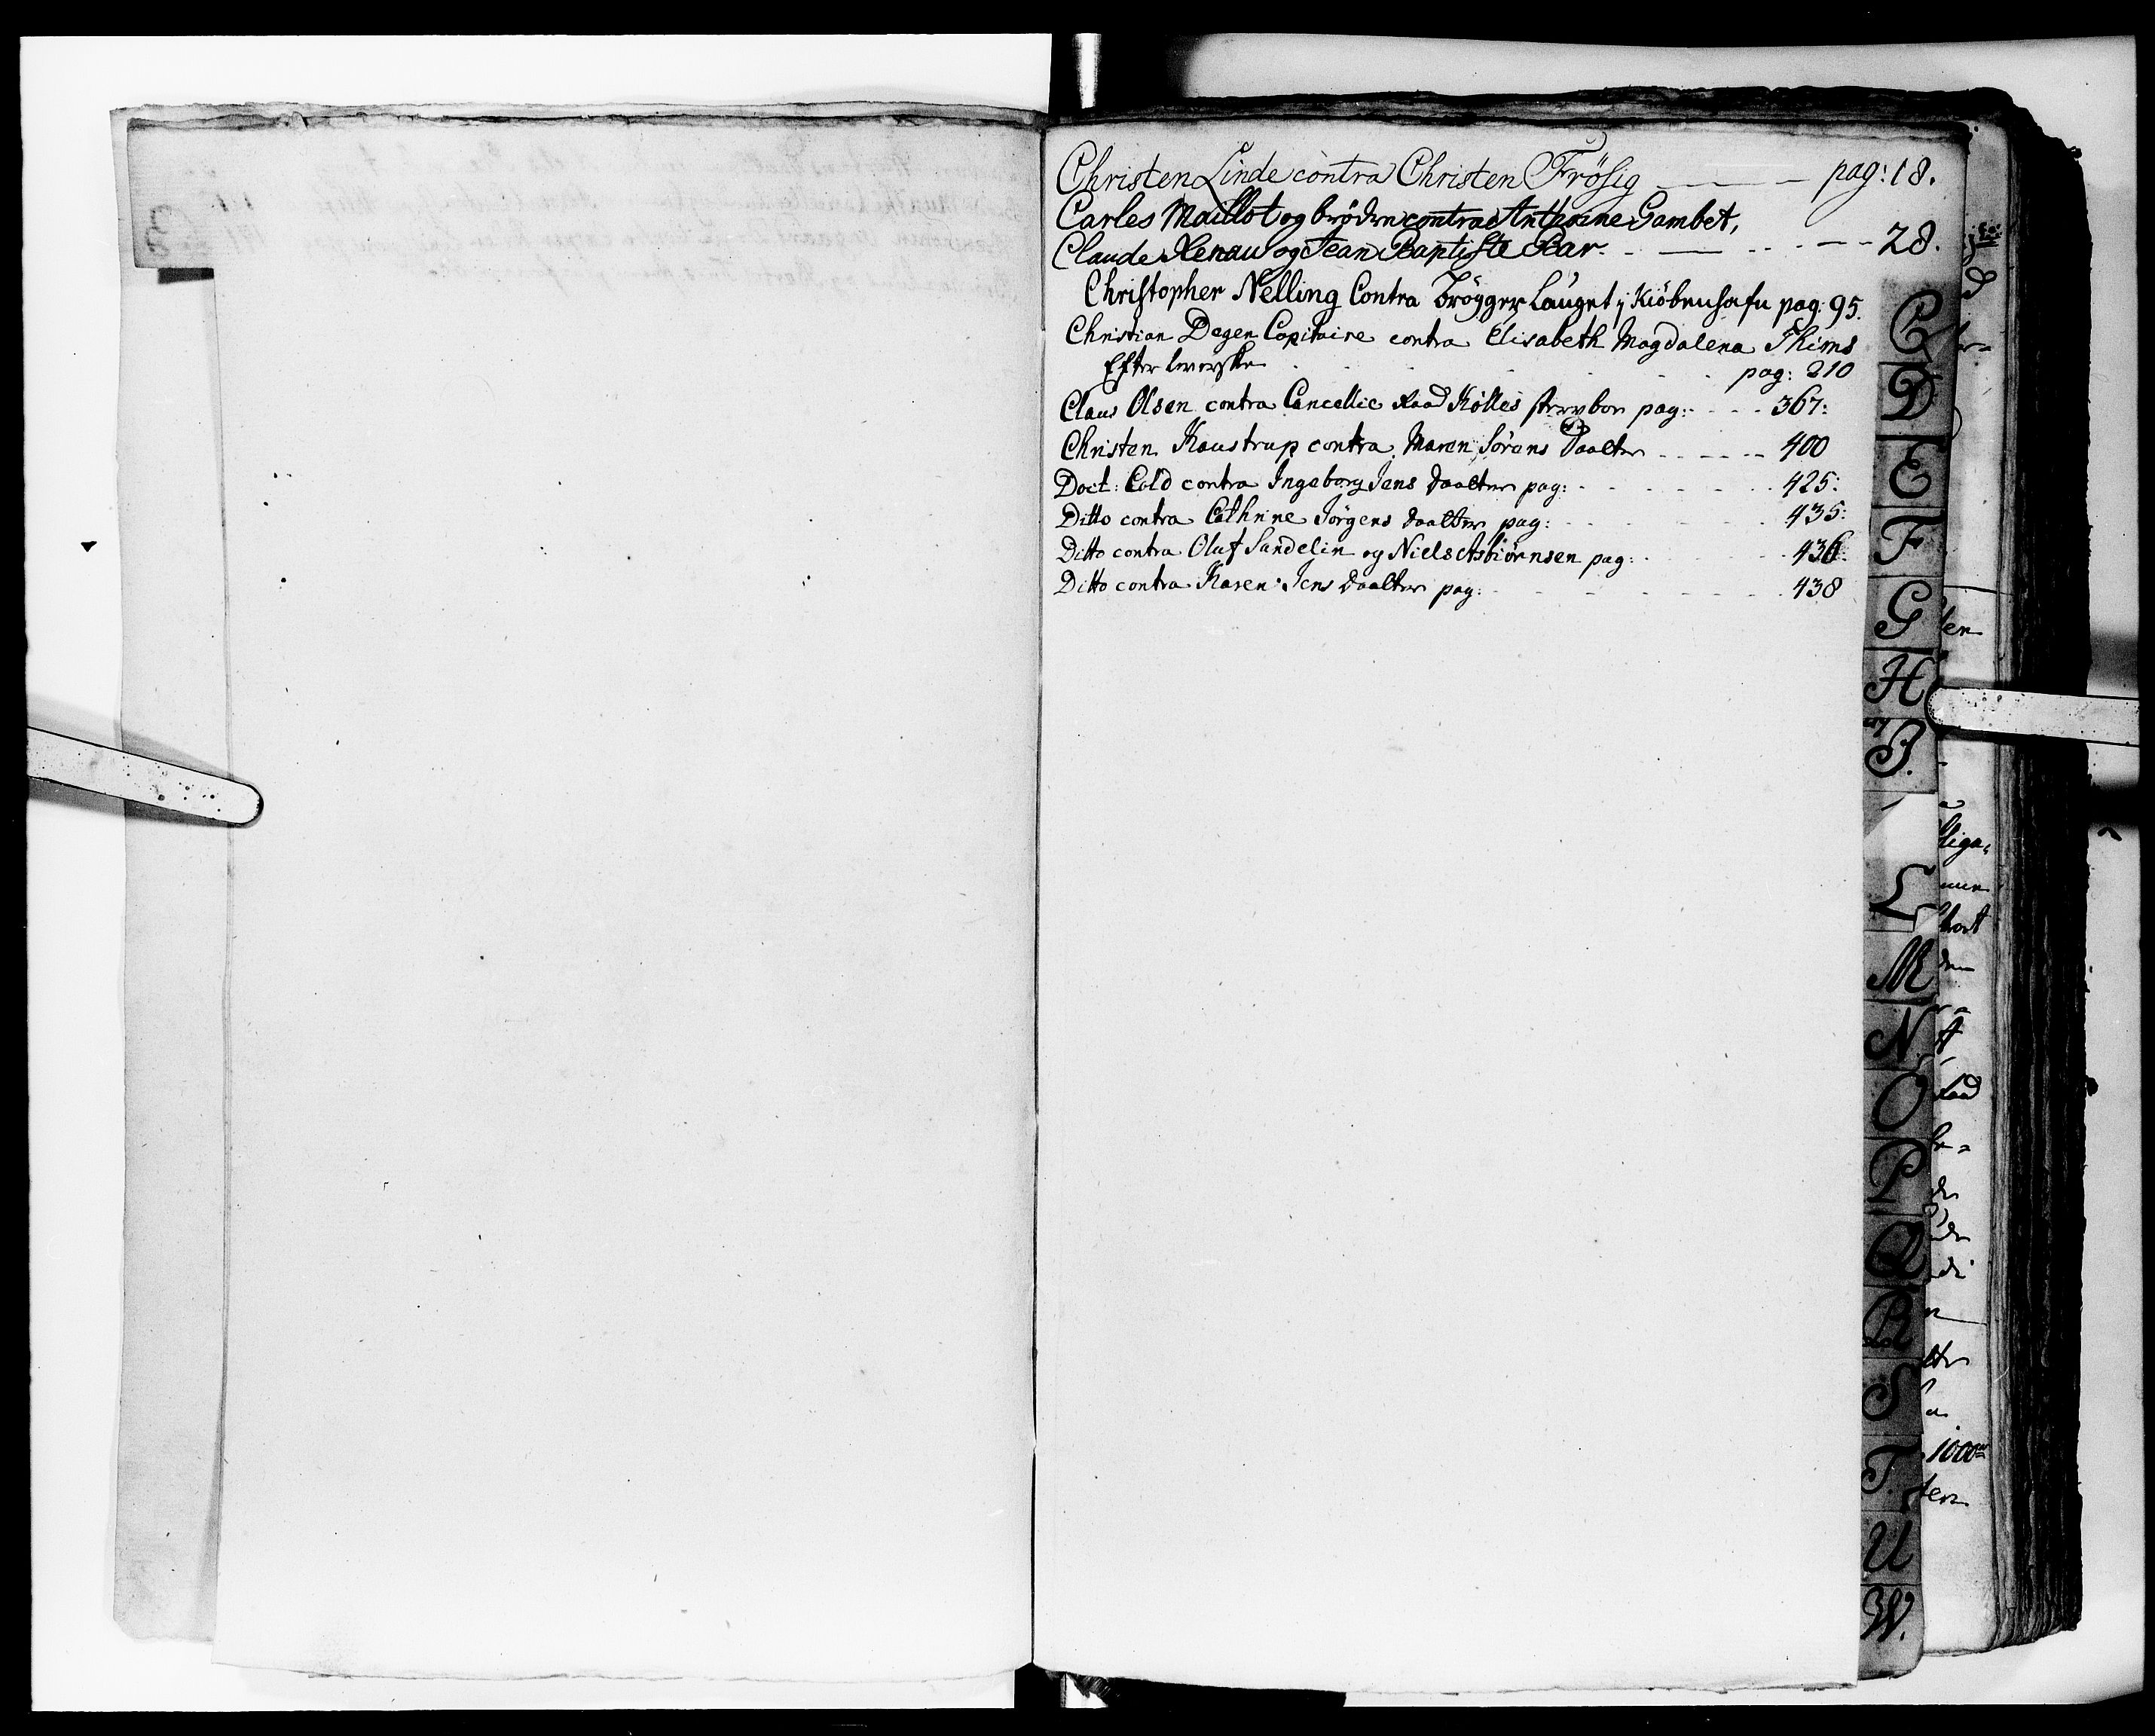 Christen Linde contra Christen Frösig pag: 18.
Carles Maillot og brödre contra Anthoine Gambet,
Claude Renau og Jean Baptiste Bar. 28.
Christopher Nelling Contra Brögger Lauget i Kiöbenhafn pag: 95.
Christian Degen Capitaine contra Elisabeth Magdalena Thims
Efter leverske pag: 210
Claus Olsen contra Cancellie Raad Kölles sterboe pag: 367:
Christen Kaustrup contra Maren Sörens Daatter 400
Doct: Cold contra Ingeborg Jens daatter pag: 425:
Ditto contra Cathrine Jörgens daatter pag: 435:
Ditto contra Oluf Sandelin og Niels Asbiörnsen pag: 436.
Ditto contra Karen Jens daatter pag: 438
C
D
E
F
G
H
I.
L
M
N
O
P
Q
R
S
T.
U
W.